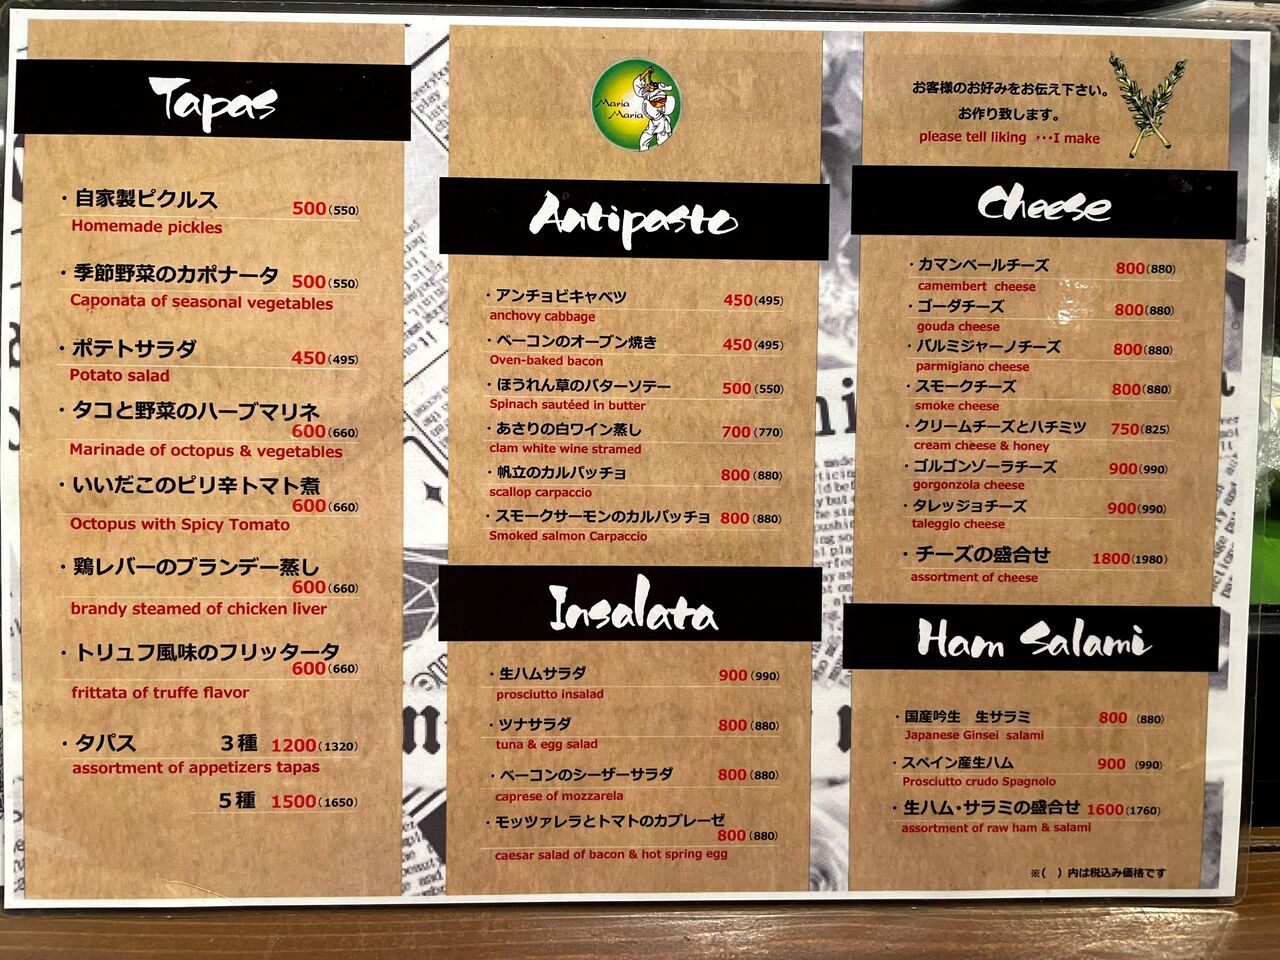 Tapas
・自家製ピクルス 500(550)
Homemade pickles
・季節野菜のカポナータ 500(550)
Caponata of seasonal vegetables
・ポテトサラダ 450(495)
Potato salad
・タコと野菜のハーブマリネ
600(660)
Marinade of octopus & vegetables
・いいだこのピリ辛トマト煮
600(660)
Octopus with Spicy Tomato
・鶏レバーのブランデー蒸し
600(660)
brandy steamed of chicken liver
・トリュフ風味のフリッタータ
600(660)
frittata of truffe flavor
・タパス 3種 1200(1320)
assortment of appetizers tapas
5種 1500(1650)
Maria
Maria
Antipasto
・アンチョビキャベツ 450(495)
anchovy cabbage
・ベーコンのオーブン焼き 450(495)
Oven-baked bacon
・ほうれん草のバターソテー 500(550)
Spinach sautéed in butter
・あさりの白ワイン蒸し 700(770)
clam white wine stramed
・帆立のカルパッチョ 800(880)
scallop carpaccio
・スモークサーモンのカルパッチョ 800(880)
Smoked salmon Carpaccio
Insalata
・生ハムサラダ 900(990)
prosciutto insalad
・ツナサラダ 800(880)
tuna & egg salad
・ベーコンのシーザーサラダ 800(880)
caprese of mozzarela
・モッツァレラとトマトのカプレーゼ
800(880)
caesar salad of bacon & hot spring egg
お客様のお好みをお伝え下さい。
お作り致します。
please tell liking ･･･I make
Cheese
・カマンベールチーズ 800(880)
camembert cheese
・ゴーダチーズ 800(880)
gouda cheese
・パルミジャーノチーズ 800(880)
parmigiano cheese
・スモークチーズ 800(880)
smoke cheese
・クリームチーズとハチミツ 750(825)
cream cheese & honey
・ゴルゴンゾーラチーズ 900(990)
gorgonzola cheese
・タレッジョチーズ 900(990)
taleggio cheese
・チーズの盛合せ 1800(1980)
assortment of cheese
Ham Salami
・国産吟生 生サラミ 800 (880)
Japanese Ginsei salami
・スペイン産生ハム 900 (990)
Prosciutto crudo Spagnolo
・生ハム・サラミの盛合せ 1600(1760)
assortment of raw ham & salamI
※( )内は税込み価格です